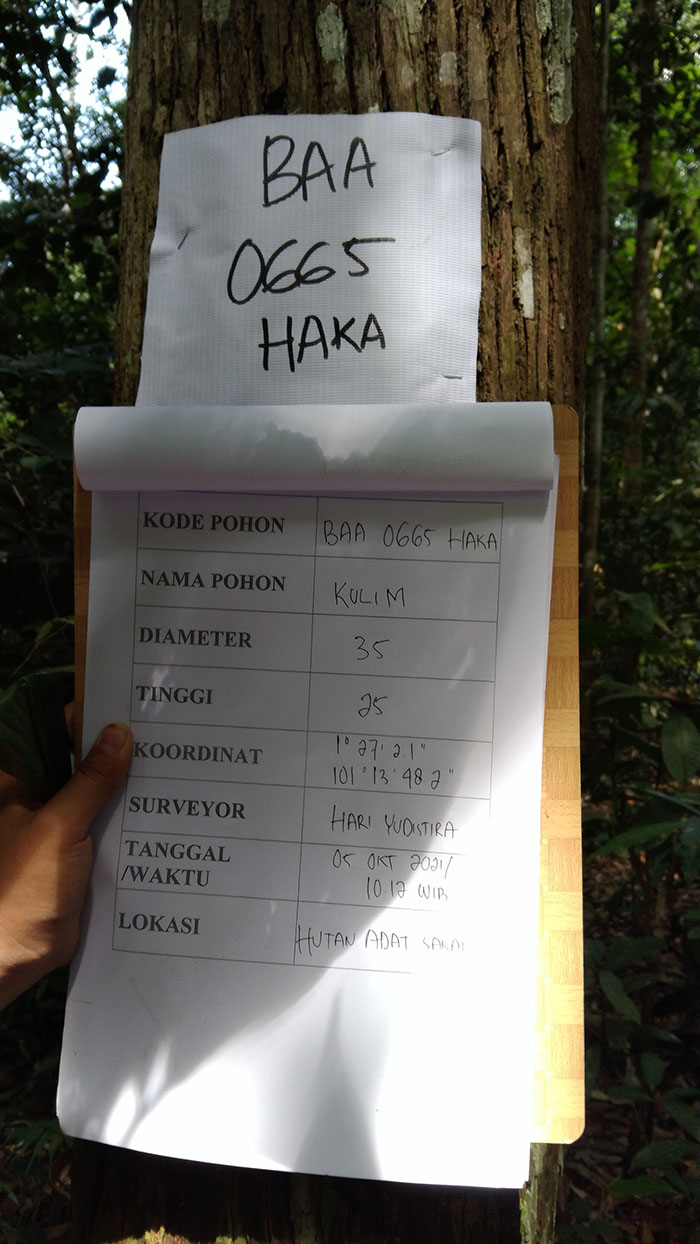 BAA
0665
HAKA
KODE POHON BAA 0665 HAKA
NAMA POHON KULIM
DIAMETER 35
TINGGI 25
KOORDINAT 1° 27' 2.1"
101° 13' 48.2"
SURVEYOR HARI YUDISTIRA
TANGGAL 05 OKT 2021/
/WAKTU 10.12 WIB
LOKASI HUTAN ADAT SAKAI